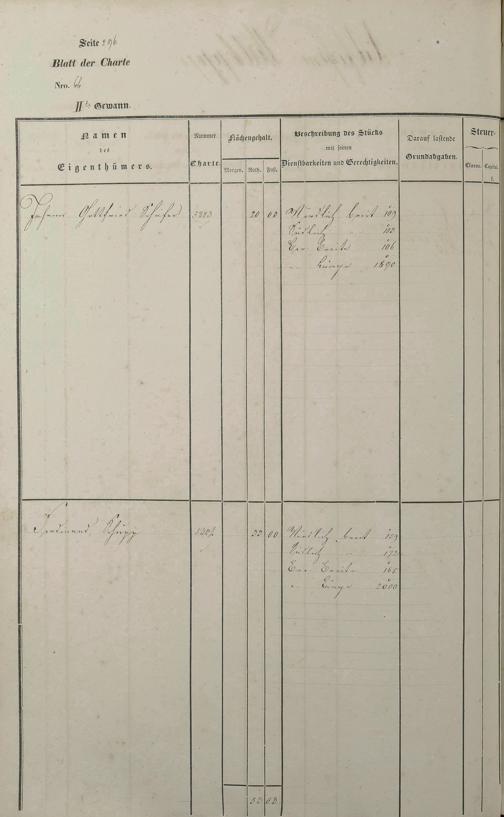 Seite 296
Blatt der Charte
Nro. 66
II te Gewann.
Namen
des
Eigenthümers.
Nummer
Charte.
Flächengehalt.
Morgen. Ruth. Fuß.
Beschreibung des Stücks
mit seinen
Dienstbarkeiten und Gerechtigkeiten.
Darauf lastende
Grundabgaben.
Steuer-
Classe. Capital.
f.
Johann Gottfried Schäfer
20 02
Nördlich breit 109
Südlich
Breite 106
Länge 1890
Ferdinand Schupp
32 00
Nördlich breit 159
Südlich 172
Breite 165
Länge 2000
52 02